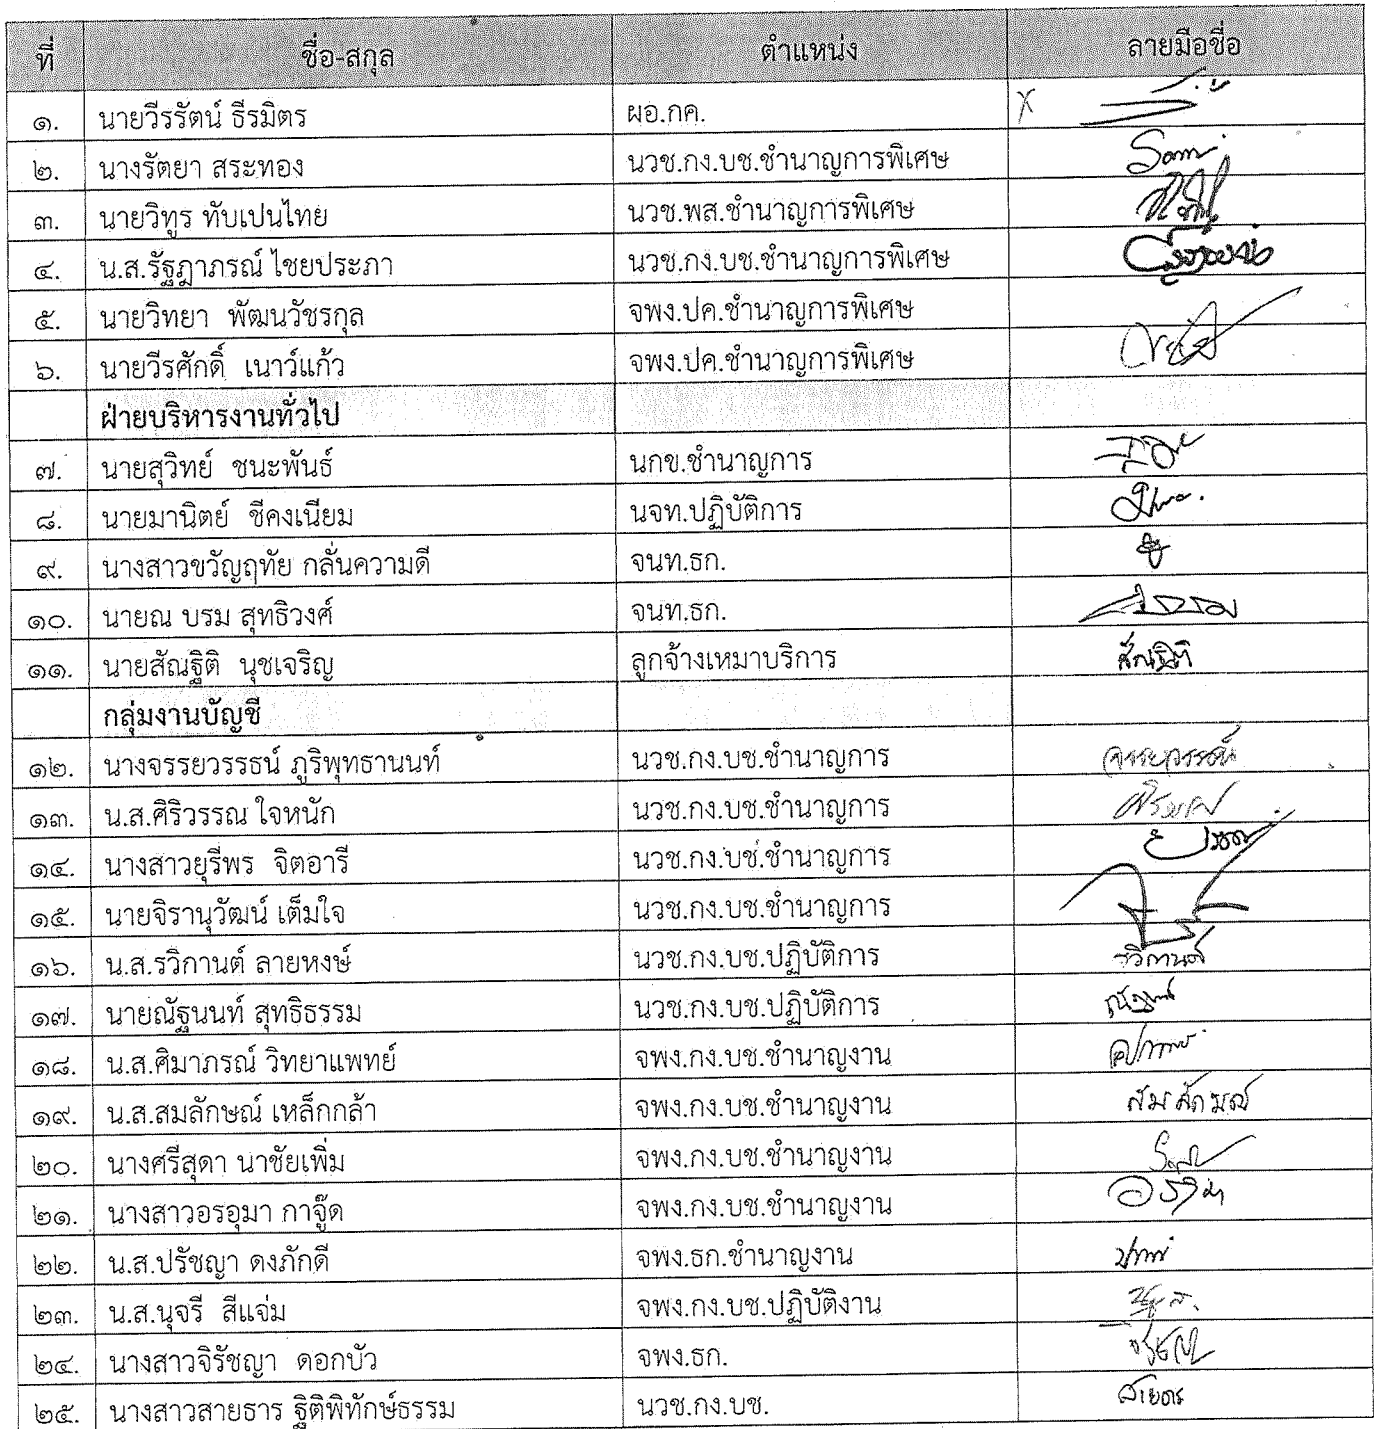 ที่ ชื่อ-สกุล ตำแหน่ง ลายมือชื่อ
๑. นายวีรรัตน์ ธีรมิตร ผอ.กค. X
๒. นางรัตยา สระทอง นวช.กง.บช.ชำนาญการพิเศษ
๓. นายวิทูร ทับเปนไทย นวช.พส.ชำนาญการพิเศษ
๔. น.ส.รัฐฎาภรณ์ ไชยประภา นวช.กง.บช.ชำนาญการพิเศษ
๕. นายวิทยา พัฒนวัชรกุล จพง.ปค.ชำนาญการพิเศษ
๖. นายวีรศักดิ์ เนาว์แก้ว จพง.ปค.ชำนาญการพิเศษ
ฝ่ายบริหารงานทั่วไป
๗. นายสุวิทย์ ชนะพันธ์ นกข.ชำนาญการ
๘. นายมานิตย์ ชีคงเนียม นจท.ปฏิบัติการ
๙. นางสาวขวัญฤทัย กลั่นความดี จนท.ธก.
๑๐. นายณ บรม สุทธิวงศ์ จนท.ธก.
๑๑. นายสัณฐิติ นุชเจริญ ลูกจ้างเหมาบริการ สัณฐิติ
กลุ่มงานบัญชี
๑๒. นางจรรยวรรธน์ ภูริพุทธานนท์ นวช.กง.บช.ชำนาญการ จรรยวรรธน์
๑๓. น.ส.ศิริวรรณ ใจหนัก นวช.กง.บช.ชำนาญการ
๑๔. นางสาวยุรีพร จิตอารี นวช.กง.บช.ชำนาญการ
๑๕. นายจิรานุวัฒน์ เต็มใจ นวช.กง.บช.ชำนาญการ
๑๖. น.ส.รวิกานต์ ลายหงษ์ นวช.กง.บช.ปฏิบัติการ รวิกานต์
๑๗. นายณัฐนนท์ สุทธิธรรม นวช.กง.บช.ปฏิบัติการ
๑๘. น.ส.ศิมาภรณ์ วิทยาแพทย์ จพง.กง.บช.ชำนาญงาน
๑๙. น.ส.สมลักษณ์ เหล็กกล้า จพง.กง.บช.ชำนาญงาน สมลักษณ์
๒๐. นางศรีสุดา นาชัยเพิ่ม จพง.กง.บช.ชำนาญงาน
๒๑. นางสาวอรอุมา กาจู๊ด จพง.กง.บช.ชำนาญงาน
๒๒. น.ส.ปรัชญา ดงภักดี จพง.ธก.ชำนาญงาน
๒๓. น.ส.นุจรี สีแจ่ม จพง.กง.บช.ปฏิบัติงาน
๒๔. นางสาวจิรัชญา ดอกบัว จพง.ธก.
๒๕. นางสาวสายธาร ฐิติพิทักษ์ธรรม นวช.กง.บช. สายธาร